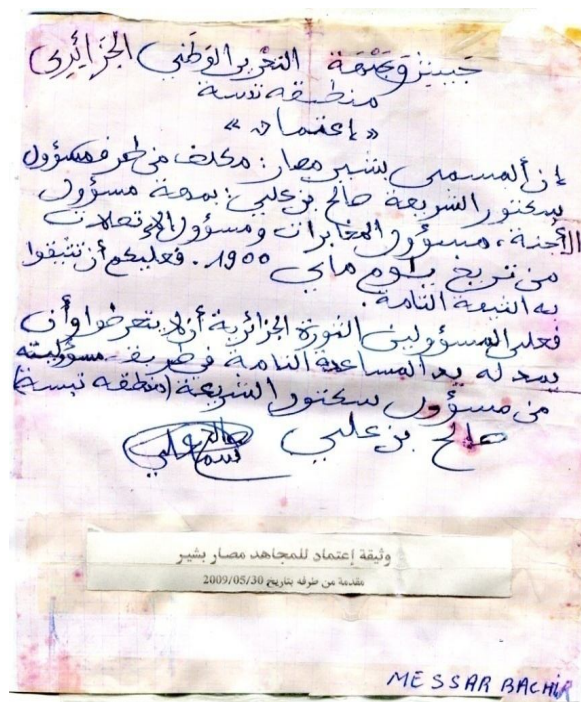 جيش وجبهة التحرير الوطني الجزائري
منطقة تبسة
« إعتماد »
إن المسمى بشير مصار: مكلف من طرف مسؤول
سكتور الشريعة صالح بن علي: بمهمة مسؤول
الأجنة، مسؤول المخابرات ومسؤول الإتصالات
من تريخ يوم ماي 1955. فعليكم أن تثيقوا
به الثيقة التامة.
فعلى المسؤولين الثورة الجزائرية أن لا يتعرضوا وأن
يمد له يد المساعدة التامة في طريق مسؤوليته
من مسؤول سكتور الشريعة (منطقة تبسة)
صالح بن علي
وثيقة إعتماد للمجاهد مصار بشير
مقدمة من طرفه بتاريخ 2009/05/30
MESSAR BACHIR